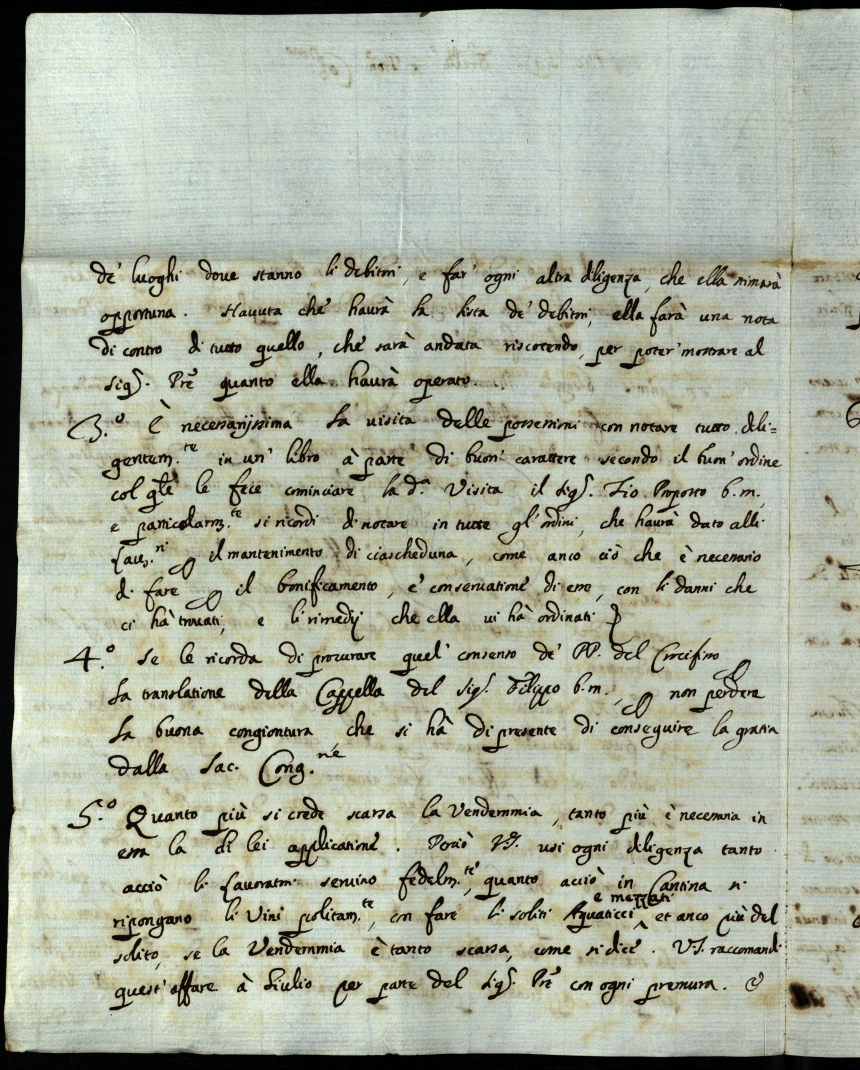 de' luoghi doue stanno li debitori, e far' ogni altra diligenza, che ella stimarà
opportuna. Hauuta che haurà la lista de' debitori, ella farà una nota
di contro di tutto quello, che sarà andata riscotendo, per poter' mostrare al
Sigr. Pre quanto ella haurà operato.
3.o È necessarijssima la visita delle possessioni con notare tutto dili=
gentem.te in un' libro à parte di buon' carattere secondo il buon' ordine
col qle le fece cominciare la d.a Visita il Sigr. Zio Proposto b.m.,
e particolarm.te si ricordi di notare in tutte gl'ordini, che haurà dato alli
Lau.ri il mantenimento di ciascheduna, come anco ciò che è necessario
di fare il bonificamento, e conseruatione di esse, con li danni che
ci hà trouati, e li rimedij che ella ui hà ordinati
4.o Se le ricorda di procurare quel' consenso de' PP. del Crocifisso
la translatione della Cappella del Sigr. Filippo b.m., non perdere
la buona congiontura che si hà di presente di conseguire la gratia
dalla Sac. Cong.ne
5.o Quanto più si crede scarsa la Vendemmia, tanto più è necessaria in
essa la di lei applicatione. Perciò VS. usi ogni diligenza tanto
acciò li Lauoratori seruino fedelm.te, quanto acciò in Cantina si
ripongano li Vini politam.te, con fare li soliti Aquaticci e mezzati et anco più del
solito, se la Vendemmia è tanto scarsa, come si dice. VS. raccomandi
quest'affare à Giulio per parte del Sigr. Pre con ogni premura.